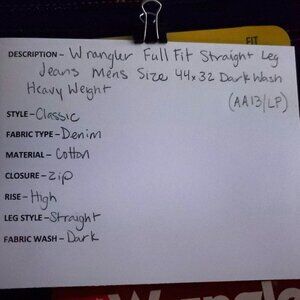 FIT
DESCRIPTION – Wrangler Full Fit Straight Leg
Jeans Mens Size 44x32 Dark Wash
Heavy Weight
(AA13/LP)
STYLE – Classic
FABRIC TYPE – Denim
MATERIAL – Cotton
CLOSURE – Zip
RISE – High
LEG STYLE – Straight
FABRIC WASH – Dark
Wrangler